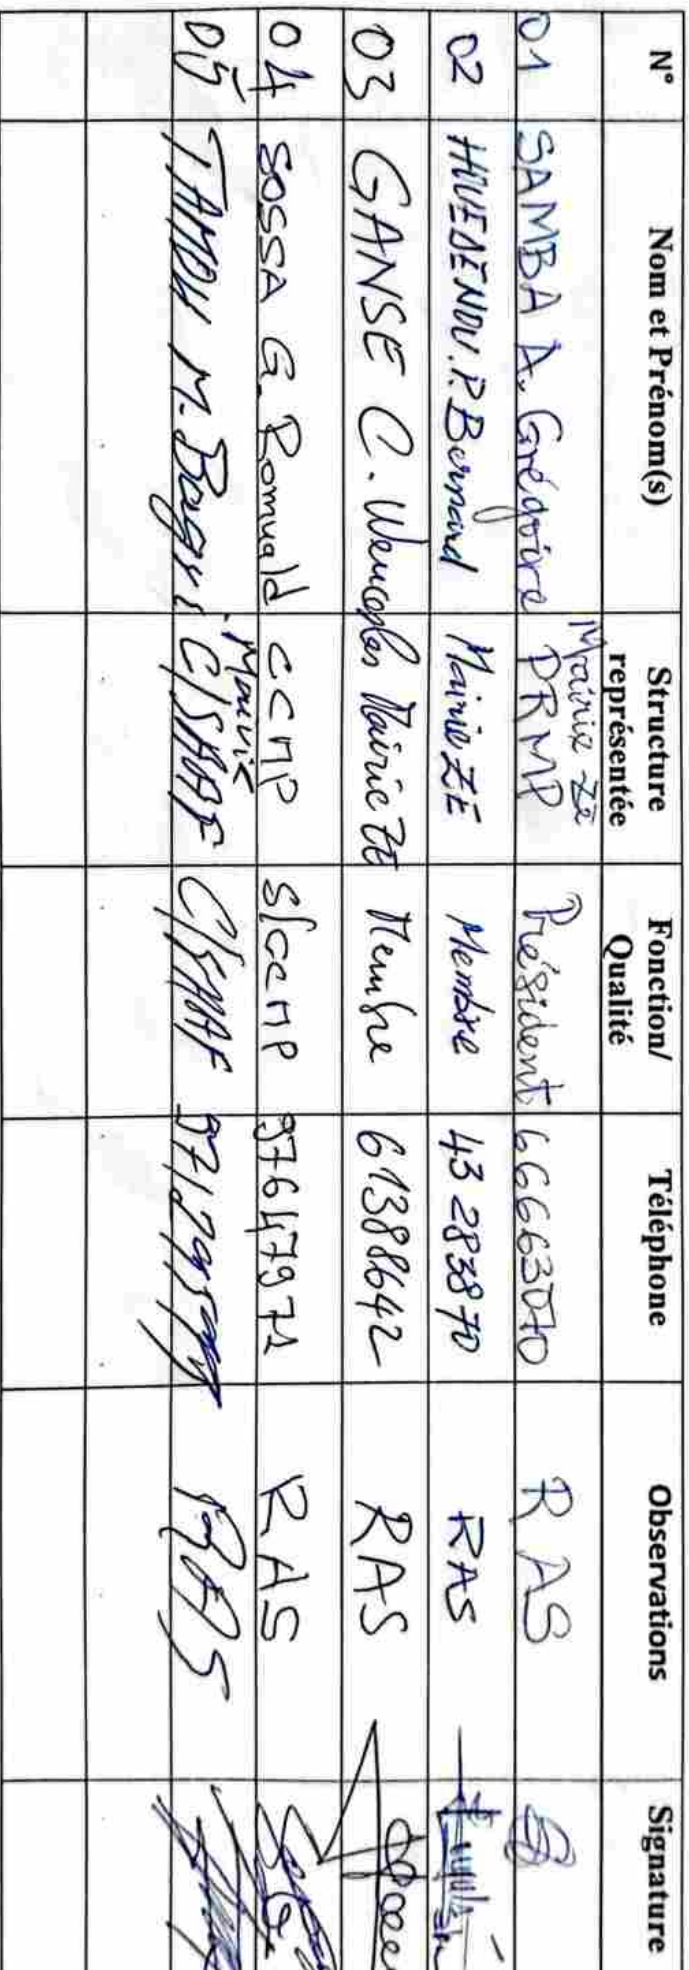 N° Nom et Prénom(s) Structure représentée Fonction/ Qualité Téléphone Observations Signature
01 SAMBA A. Grégoire Mairie Zè PRMP Président 66663070 RAS
02 P. Bernard Mairie ZÈ Membre 43 283870 RAS
03 GANSE C. Mairie ZE Membre 61388642 RAS
04 SOSSA G. Romuald CCMP S/CCMP 97647971 RAS
05 M. Mairie C/SAAF C/SAAF RAS